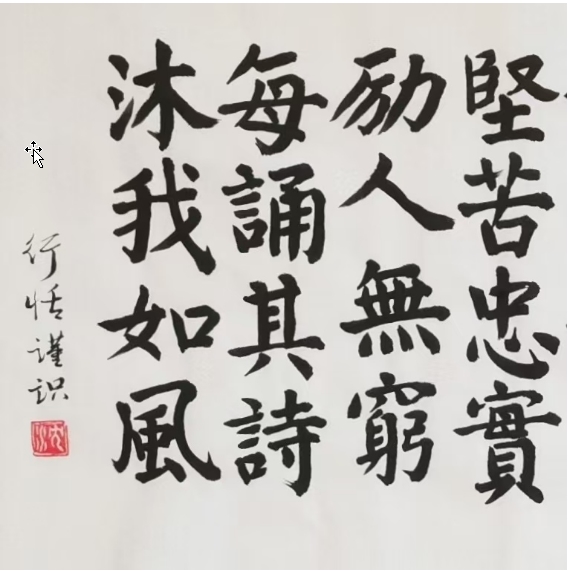 堅苦忠實
励人無窮
每誦其詩
沐我如風
行恬謹识